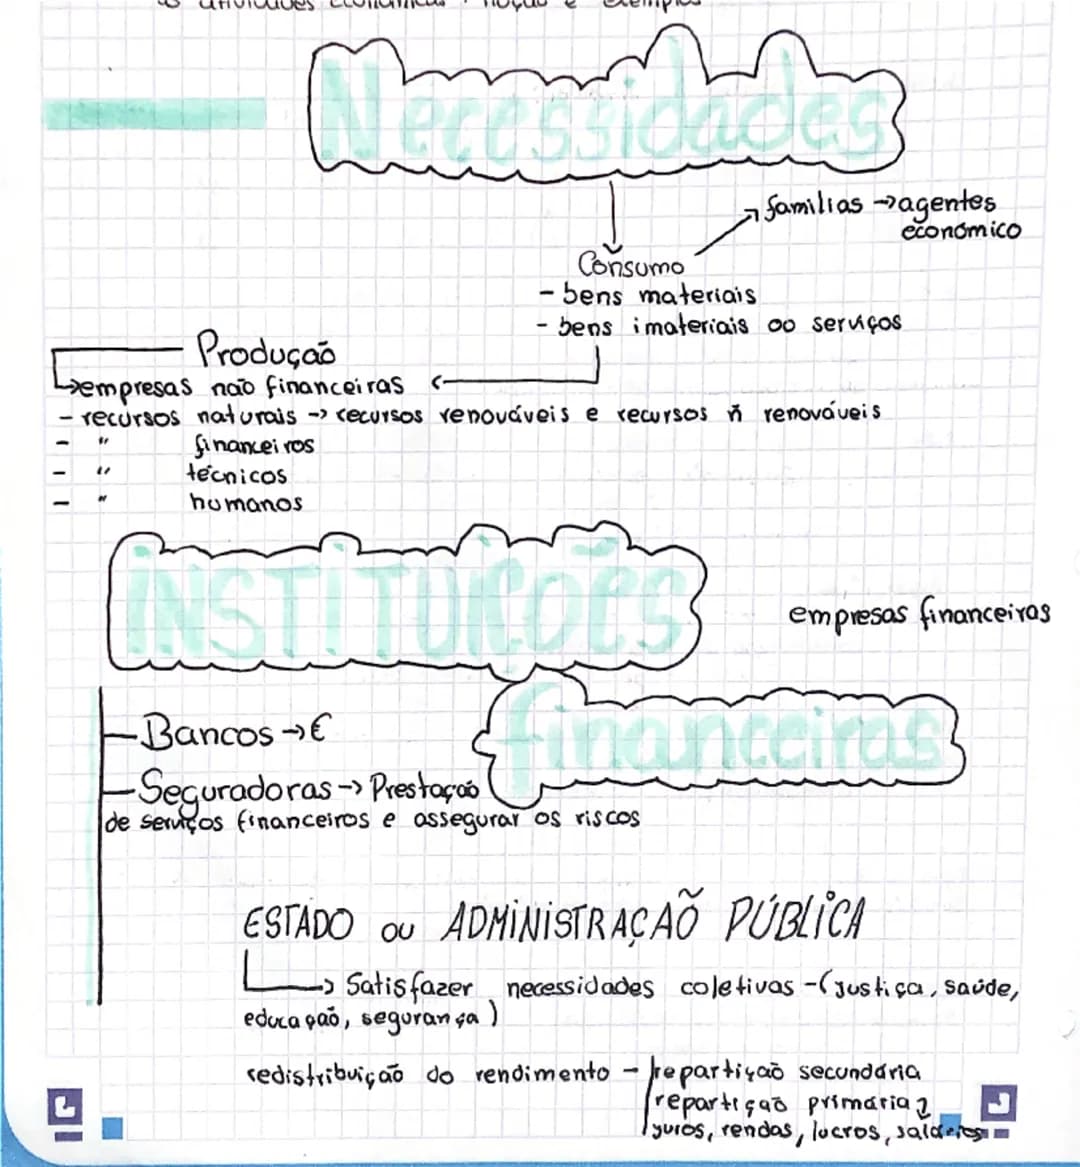 as atividades económicas : noção e exemplos
Necessidades
familias → agentes
económico
Consumo
- bens materiais
- bens imateriais ou serviços
Produção
empresas não financeiras
- recursos naturais → recursos renováveis e recursos ñ renováveis
- " financeiros
- " técnicos
- " humanos
INSTITUIÇÕES
empresas financeiras
financeiras
Bancos → €
Seguradoras → Prestação
de serviços financeiros e assegurar os riscos
ESTADO ou ADMINISTRAÇÃO PÚBLICA
→ Satisfazer necessidades coletivas - (justiça, saúde,
educação, segurança)
redistribuição do rendimento - repartição secundária
repartição primária
juros, rendas, lucros, salários